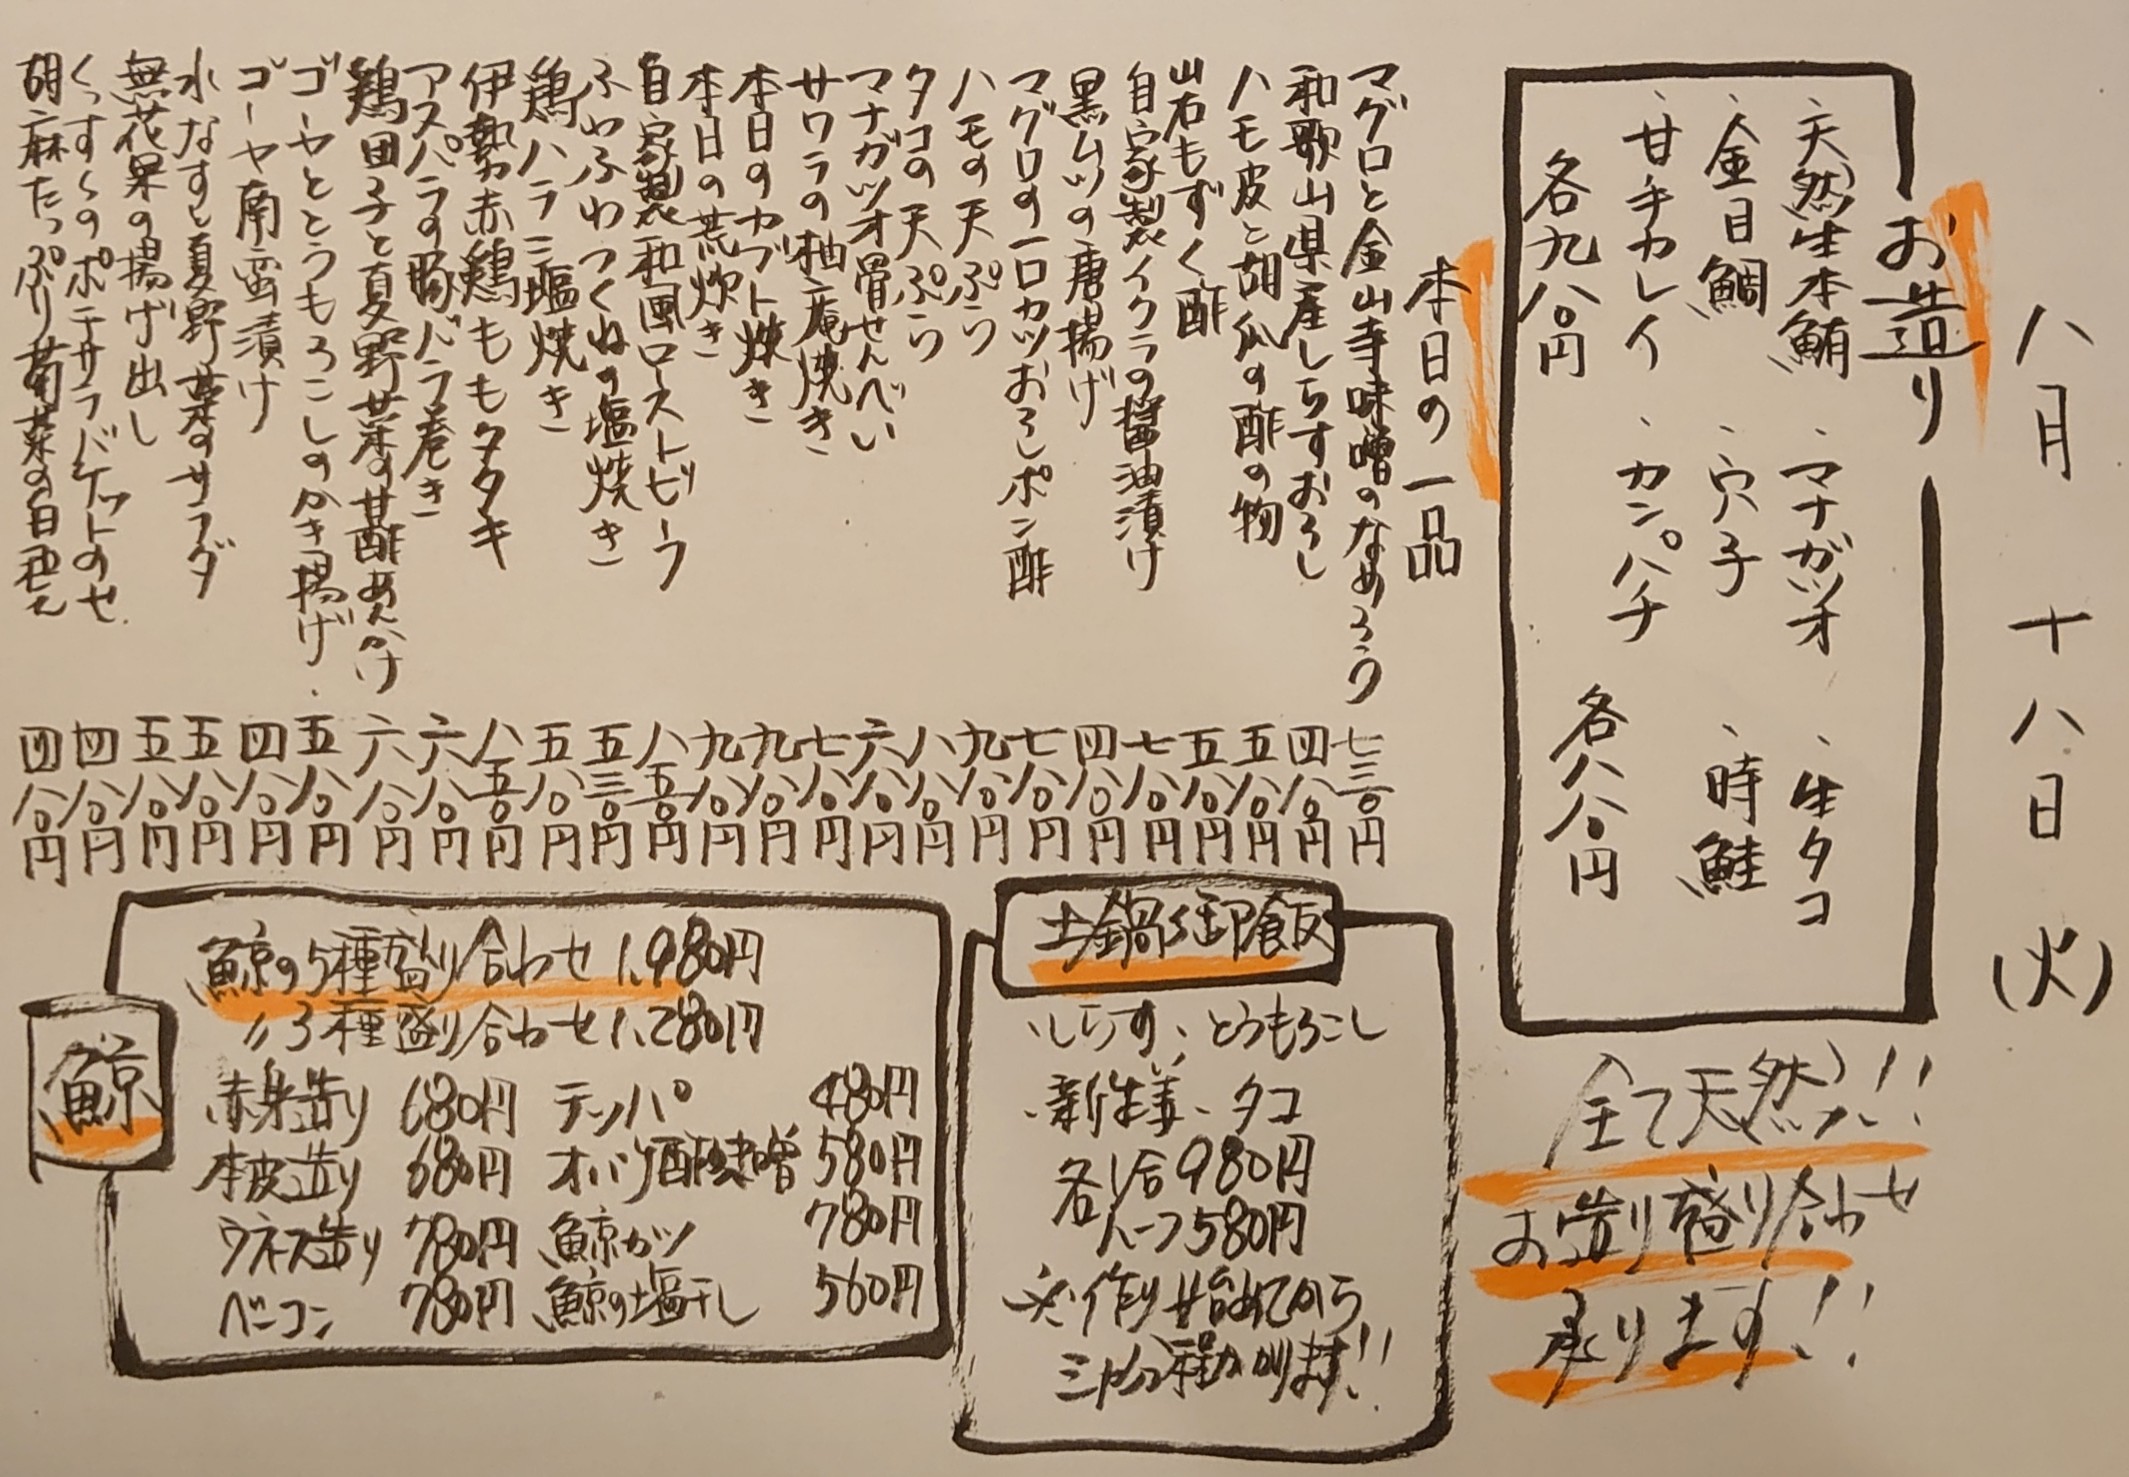 八月十八日(火)
お造り
、天然生本鮪 、マナガツオ 、生タコ
、金目鯛 、穴子 、時鮭
、甘手カレイ 、カンパチ
各九八〇円 各八八〇円
全て天然!!
お造り盛り合わせ
承ります!!
本日の一品
マグロと金山寺味噌のなめろう 七三〇円
和歌山県産しらすおろし 四八〇円
ハモ皮と胡瓜の酢の物 五八〇円
岩もずく酢 五八〇円
自家製イクラの醤油漬け 七八〇円
黒ムツの唐揚げ 四八〇円
マグロの一口カツおろしポン酢 七八〇円
ハモの天ぷら 九八〇円
タコの天ぷら 八八〇円
マナガツオ骨せんべい 六八〇円
サワラの柚庵焼き 七八〇円
本日のカブト焼き 九八〇円
本日の荒炊き 九八〇円
自家製和風ローストビーフ 八五〇円
ふわふわつくねの塩焼き 五三〇円
鶏ハラミ塩焼き 五八〇円
伊勢赤鶏ももタタキ 八五〇円
アスパラの豚バラ巻き 六八〇円
鶏団子と夏野菜の甘酢あんかけ 六八〇円
ゴーヤととうもろこしのかき揚げ 五八〇円
ゴーヤ南蛮漬け 四八〇円
水なすと夏野菜のサラダ 五八〇円
無花果の揚げ出し 五八〇円
のポテサラバケットのせ 四八〇円
胡麻たっぷり菊菜の白和え 四八〇円
土鍋御飯
、しらす、とうもろこし
、新生姜、タコ
各1合980円
ハーフ580円
※作り始めてから
三十分程かかります!!
鯨
鯨の5種盛り合わせ 1,980円
〃3種盛り合わせ 1,280円
赤身造り 680円 テッパ 480円
本皮造り 680円 オバケ酢味噌 580円
ウネス造り 780円 鯨カツ 780円
ベーコン 780円 鯨の塩干し 560円